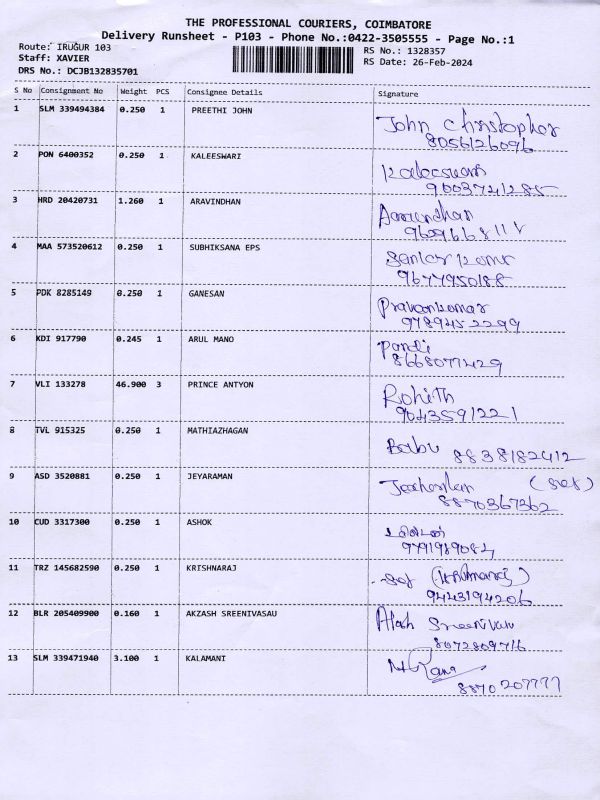 THE PROFESSIONAL COURIERS, COIMBATORE
Delivery Runsheet - P103 - Phone No.:0422-3505555 - Page No.:1
Route: IRUGUR 103 RS No.: 1328357
Staff: XAVIER RS Date: 26-Feb-2024
DRS No.: DCJB132835701
S No Consignment No Weight PCS Consignee Details Signature
1 SLM 339494384 0.250 1 PREETHI JOHN John Christopher
8056126096
2 PON 6400352 0.250 1 KALEESWARI Kaleeswari
9003741285
3 HRD 20420731 1.260 1 ARAVINDHAN Aravindhan
4 MAA 573520612 0.250 1 SUBHIKSANA EPS
9677950188
5 PDK 8285149 0.250 1 GANESAN Praveenkumar
9789452299
6 KDI 917790 0.245 1 ARUL MANO Pandi
8668077429
7 VLI 133278 46.900 3 PRINCE ANTYON Rohith
9043591221
8 TVL 915325 0.250 1 MATHIAZHAGAN Babu 8838182412
9 ASD 3520881 0.250 1 JEYARAMAN
8870367362
10 CUD 3317300 0.250 1 ASHOK
9791989084
11 TRZ 145682590 0.250 1 KRISHNARAJ
9443194206
12 BLR 205409900 0.160 1 AKZASH SREENIVASAU
8072809716
13 SLM 339471940 3.100 1 KALAMANI
8870207777